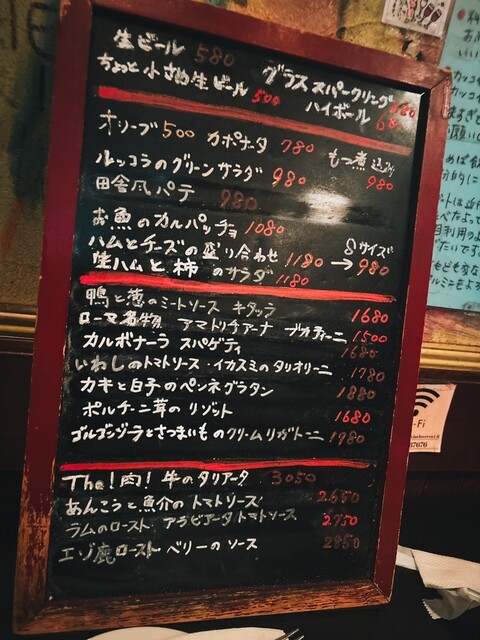 生ビール 580
ちょっと小さめ生ビール 500
グラススパークリング 680
ハイボール
オリーブ 500 カポナータ 780
もつ煮込み 980
ルッコラのグリーンサラダ 980
田舎風パテ 980
お魚のカルパッチョ 1080
ハムとチーズの盛り合わせ 1180 → Sサイズ 980
生ハムと柿のサラダ 1180
鴨と葱のミートソース キタッラ 1680
ローマ名物 アマトリチアーナ ブカティーニ 1500
カルボナーラ スパゲティ 1680
いわしのトマトソース・イカスミのタリオリーニ 1780
カキと白子のペンネグラタン 1880
ポルチーニ茸のリゾット 1680
ゴルゴンゾーラとさつまいものクリームリガトーニ 1780
The!肉! 牛のタリアータ 3050
あんこうと魚介のトマトソース 2650
ラムのロースト アラビアータトマトソース 2750
エゾ鹿ロースト ベリーのソース 2850
Fi